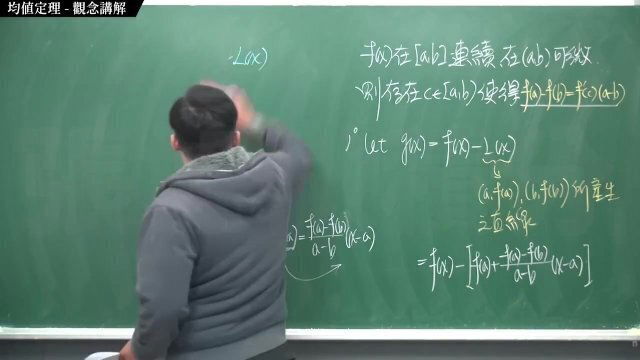 均值定理 - 觀念講解
L(x)
f(x)在[a,b]連續 在(a,b)可微.
則存在c∈[a,b) 使得 f(a)-f(b)=f'(c)(a-b)
1° let g(x) = f(x) - L(x)
(a,f(a)),(b,f(b))所產生
之直線
= \frac{f(a)-f(b)}{a-b}(x-a)
= f(x) - [f(a) + \frac{f(a)-f(b)}{a-b}(x-a)]